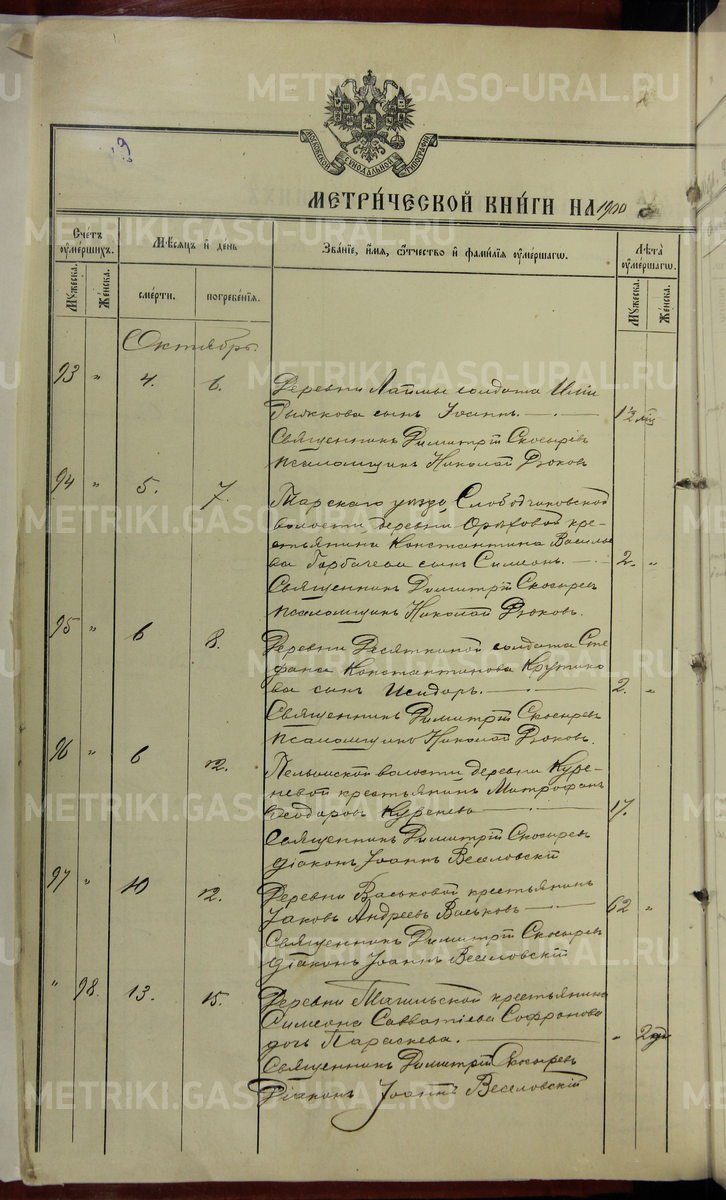 METRIKI.GASO-URAL.RU
МОСКОВСКОЙ СѴНОДАЛЬНОЙ ТИПОГРАФІИ
МЕТРИ́ЧЕСКОЙ КНИ́ГИ НА 1900
Сче́тъ ᲂумершихъ.
Мѣсяцъ и день
Зва́нїе, и́мя, ѻ҆́тчество и фами́лїя ᲂуме́ршагѡ.
Лѣта̀ ᲂуме́ршагѡ.
Мꙋ́жеска.
Же́нска.
сме́рти.
погребе́нїѧ.
Мꙋ́жеска.
Же́нска.
Октябрь.
93 " 4. 6. Деревни Лаймы солдата Иліи
Рыжкова сынъ Іоаннъ. 1 1/2 мѣс
Священникъ Димитрій Скосыревъ
псаломщикъ Николай Рюковъ
94 " 5. 7. Тарскаго уѣзда, Слободчиковской
волости деревни Орѣховой кре-
стьянина Константина Василье
ва Горбачева сынъ Симеонъ. 2. "
Священникъ Димитрій Скосыревъ
псаломщикъ Николай Рюковъ.
95 " 6 8. Деревни Десяткиной солдата Сте
фана Константинова Крутико
ва сынъ Исидоръ. 2. "
Священникъ Димитрій Скосыревъ
псаломщикъ Николай Рюковъ.
96 " 6 12. Пелымской волости деревни Куре-
невой крестьянинъ Митрофанъ
Ѳеодоровъ Куреневъ 17.
Священникъ Димитрій Скосыревъ
діаконъ Іоаннъ Веселовскій
97 " 10 12. Деревни Васьковой крестьянинъ
Іаковъ Андреевъ Васьковъ 62 "
Священникъ Димитрій Скосыревъ
діаконъ Іоаннъ Веселовскій
" 98. 13. 15. Деревни Тагильской крестьянина
Симеона Савватіева Софронова
дочь Параскева. " 2 дн
Священникъ Димитрій Скосыревъ
Діаконъ Іоаннъ Веселовскій